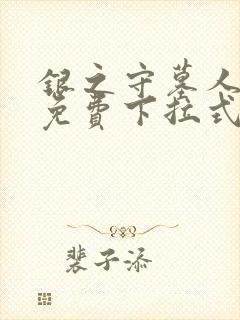 银之守墓人
免费下拉式
裴子添